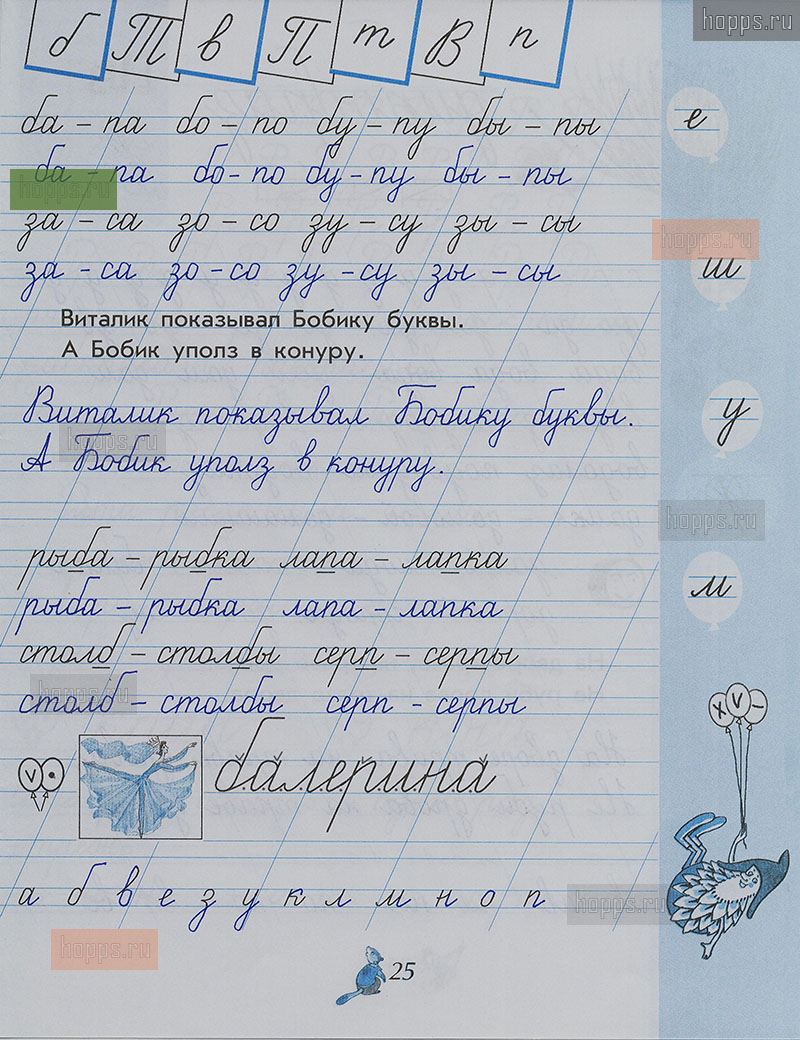 hopps.ru
б Т в П т В п
ба – па бо – по бу – пу бы – пы
е
ба – па бо – по бу – пу бы – пы
hopps.ru
за – са зо – со зу – су зы – сы
hopps.ru
за – са зо – со зу – су зы – сы
ш
Виталик показывал Бобику буквы.
А Бобик уполз в конуру.
Виталик показывал Бобику буквы.
у
hopps.ru
А Бобик уполз в конуру.
hopps.ru
рыба – рыбка лапа – лапка
м
рыба – рыбка лапа – лапка
столб – столбы серп – серпы
hopps.ru
столб – столбы серп – серпы
х v –
v •
балерина
а б в е з у к л м н о п
hopps.ru
hopps.ru
25